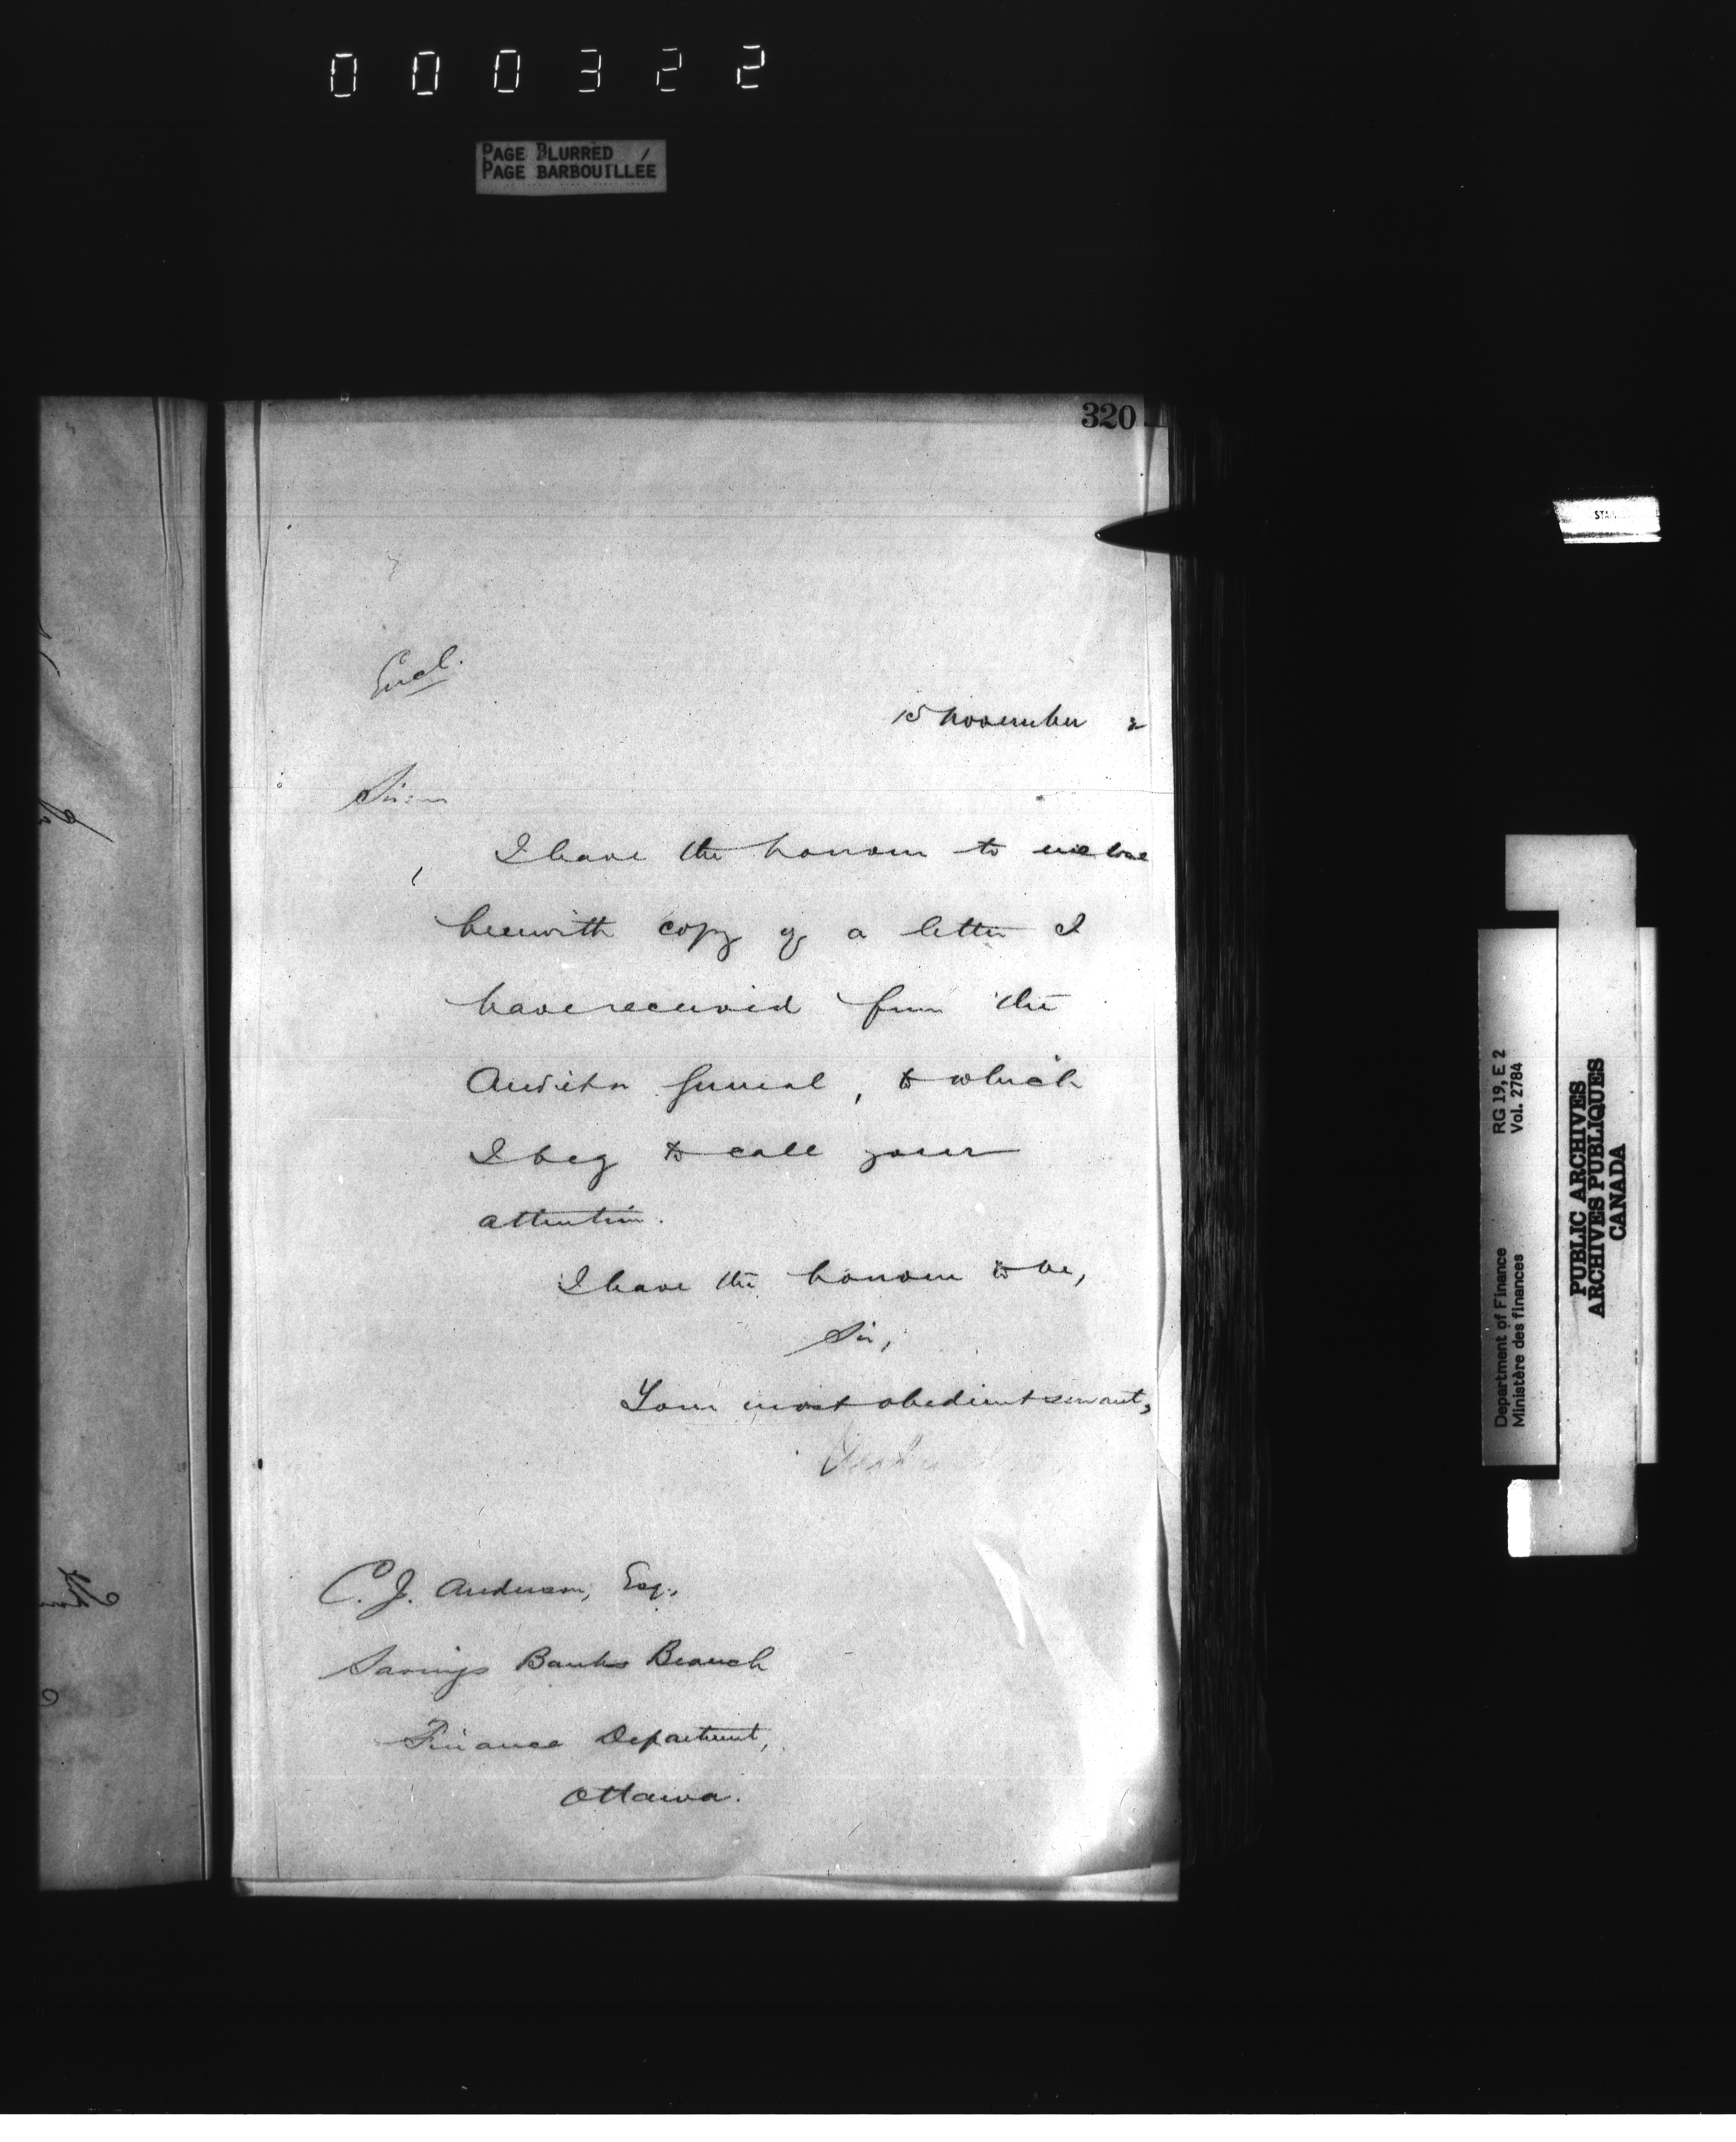 000322
PAGE BLURRED
PAGE BARBOUILLÉE
320
Encl.
15 November 2
Sir:—
I have the honour to enclose
herewith copy of a letter I
have received from the
Auditor General, to which
I beg to call your
attention.
I have the honour to be,
Sir,
Your most obedient servant,
C. J. Anderson, Esq.,
Savings Banks Branch
Finance Department,
Ottawa.
STAN
Department of Finance RG 19, E 2
Ministère des finances Vol. 2784
PUBLIC ARCHIVES
ARCHIVES PUBLIQUES
CANADA